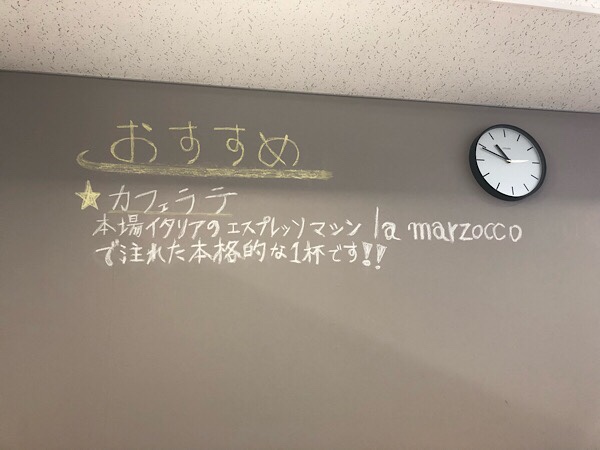 おすすめ
★カフェラテ
本場イタリアのエスプレッソマシン la marzocco
で注れた本格的な1杯です!!